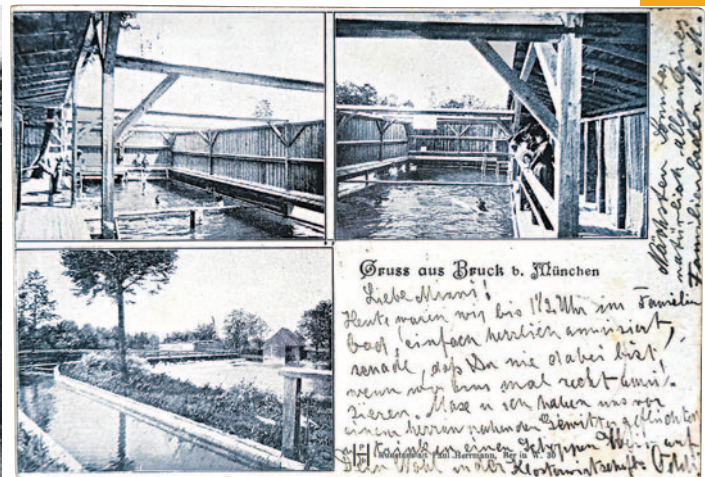 Gruss aus Bruck b. München
Liebe Mimi!
Heute waren wir bis 1/2 2 Uhr im Familien
bad, einfach herrlich amüsiert,
schade, daß Du nie dabei bist,
wenn wir uns mal recht amü-
sieren. u ich haben uns vor
einem nahenden Gewitter geflüchtet
u trinken einen Schoppen auf
Dein Wohl in der Klosterwirtschaft.
Kunstanstalt Paul Herrmann, Berlin W. 30
Nächsten Sonntag
natürlich allgemeines
Familienbaden